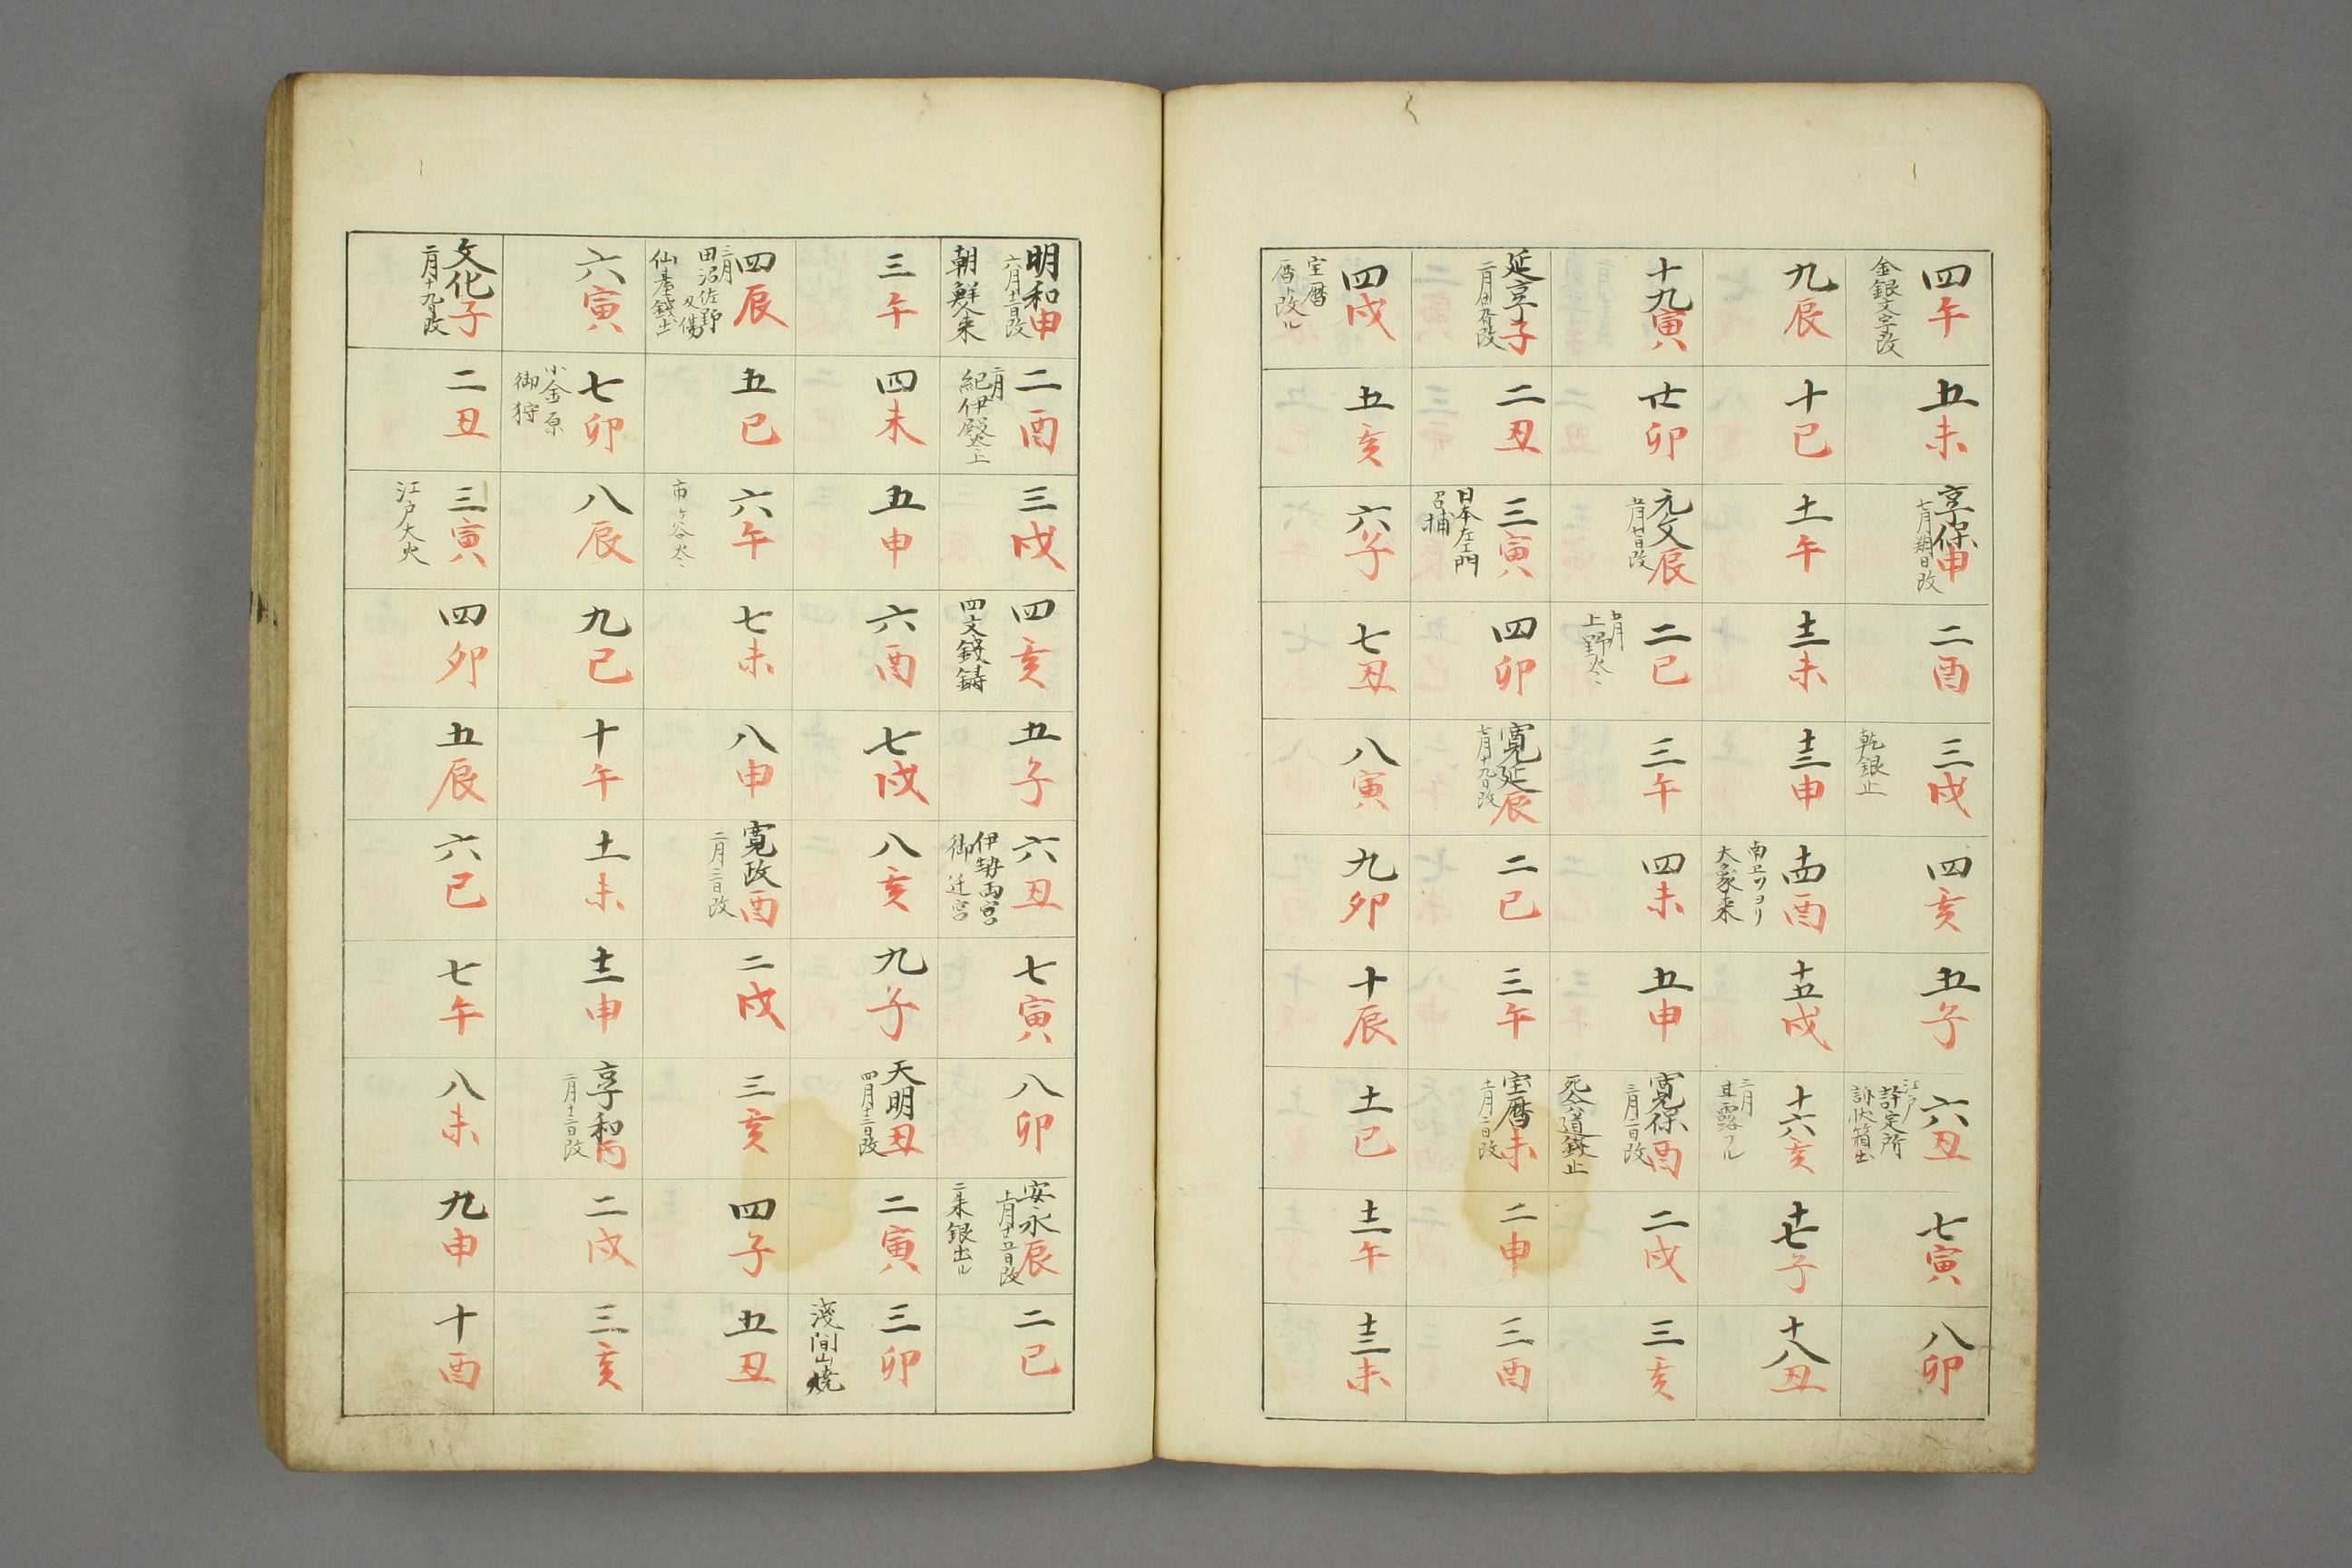 四午
金銀文字改
五未
享保申
七月朔日改
二酉
三戌
乾銀止
四亥
五子
六丑
江戸
評定所
訴状箱出
七寅
八卯
九辰
十巳
十一午
十二未
十三申
十四酉
南エツヨリ
大象来
十五戌
十六亥
三月
甘露フル
十七子
十八丑
十九寅
廿卯
元文辰
五月廿日改
二巳
上野火
三午
四未
五申
寛保酉
三月二日改
二戌
三亥
延享子
二月廿九日改
二丑
三寅
日本左エ門
召捕
四卯
寛延辰
七月十九日改
二巳
三午
宝暦未
十一月二日改
二申
三酉
四戌
宝暦
暦改ル
五亥
六子
七丑
八寅
九卯
十辰
十一巳
十二午
十三未
明和申
六月十三日改
朝鮮人来
二酉
二月
三戌
四亥
四文銭鋳
五子
六丑
伊勢両宮
御迁宮
七寅
八卯
安永辰
十一月廿五日改
二朱銀出ル
二巳
三午
四未
五申
六酉
七戌
八亥
九子
天明丑
四月十三日改
二寅
三卯
浅間山焼
四辰
三月
田沼佐野
刃傷
仙臺銭出
五巳
六午
市ヶ谷火
七未
八申
寛政酉
二月三日改
二戌
三亥
四子
五丑
六寅
七卯
小金原
御狩
八辰
九巳
十午
十一未
十二申
享和酉
二月十三日改
二戌
三亥
文化子
二月十九日改
二丑
三寅
江戸大火
四卯
五辰
六巳
七午
八未
九申
十酉